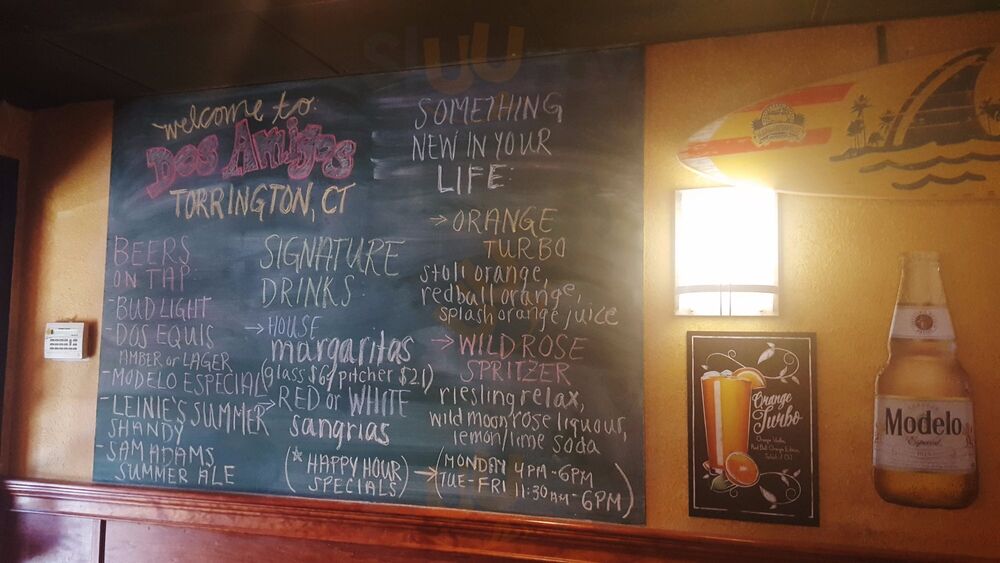 welcome to:
DOS Amigos
TORRINGTON, CT
BEERS
ON TAP:
-BUD LIGHT
-DOS EQUIS
AMBER or LAGER
-MODELO ESPECIAL
-LEINIE'S SUMMER
SHANDY
-SAM ADAMS
SUMMER ALE
SIGNATURE
DRINKS:
→HOUSE
margaritas
(glass $6/pitcher $21)
→RED or WHITE
sangrias
(*HAPPY HOUR
SPECIALS)
→(MONDAY 4PM-6PM
TUE-FRI 11:30AM-6PM)
SOMETHING
NEW IN YOUR
LIFE:
→ORANGE
TURBO
stoli orange,
redball orange,
splash orange juice
→WILDROSE
SPRITZER
riesling relax,
wild moon rose liquour,
lemon/lime soda
Orange
Turbo
Modelo
Especial